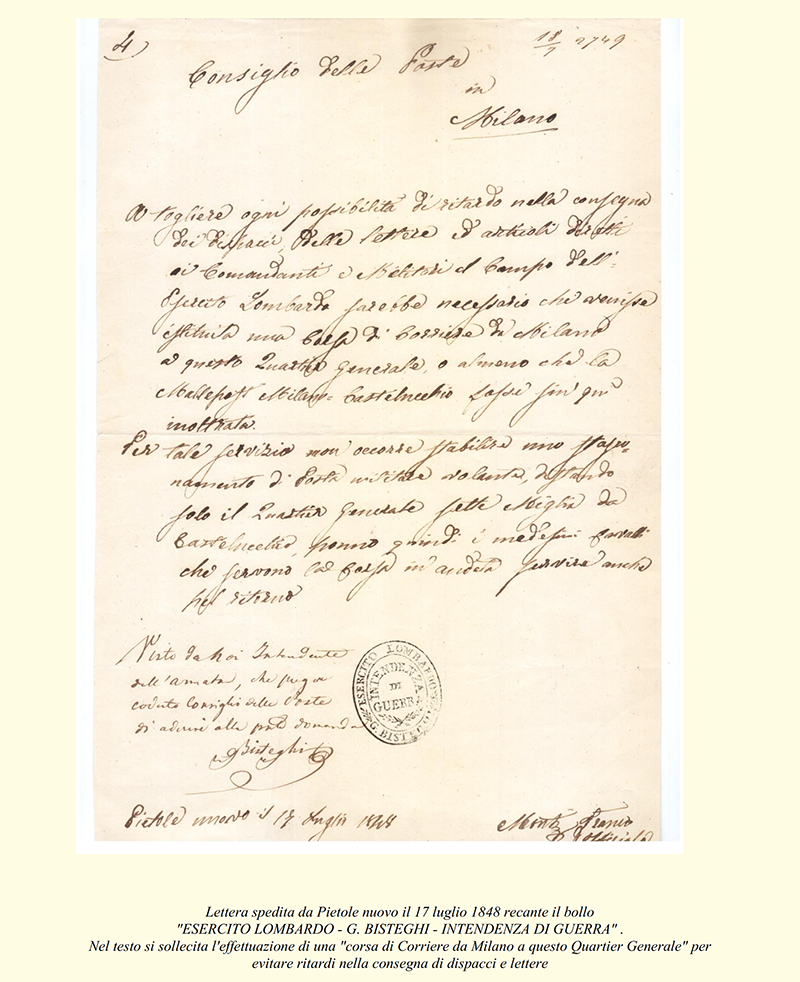 4)
18/7 2749
Consiglio delle Poste
in
Milano
A togliere ogni possibilità di ritardo nella consegna
dei dispacci, delle lettere ed articoli diretti
ai Comandanti e Militari al Campo dell'
Esercito Lombardo sarebbe necessario che venisse
istituita una Corsa di Corriere da Milano
a questo Quartier Generale, o almeno che la
Mallepost Milano = Castelucchio fosse sin qui
inoltrata.
Per tale servizio non occorre stabilire uno stazio-
namento di Posta militare volante, distando
solo il Quartier Generale sette Miglia da
Castelucchio, ponno quindi i medesimi Cavalli
che servono la Corsa in andata servire anche
pel ritorno
Visto da Noi Intendente
dell'armata, che prega
codesto Consiglio delle Poste
di aderire alla domanda
Bisteghi
ESERCITO LOMBARDO
INTENDENZA
DI
GUERRA
G. BISTEGHI
Pietole nuovo il 17 Luglio 1848
Lettera spedita da Pietole nuovo il 17 luglio 1848 recante il bollo
"ESERCITO LOMBARDO - G. BISTEGHI - INTENDENZA DI GUERRA" .
Nel testo si sollecita l'effettuazione di una "corsa di Corriere da Milano a questo Quartier Generale" per
evitare ritardi nella consegna di dispacci e lettere